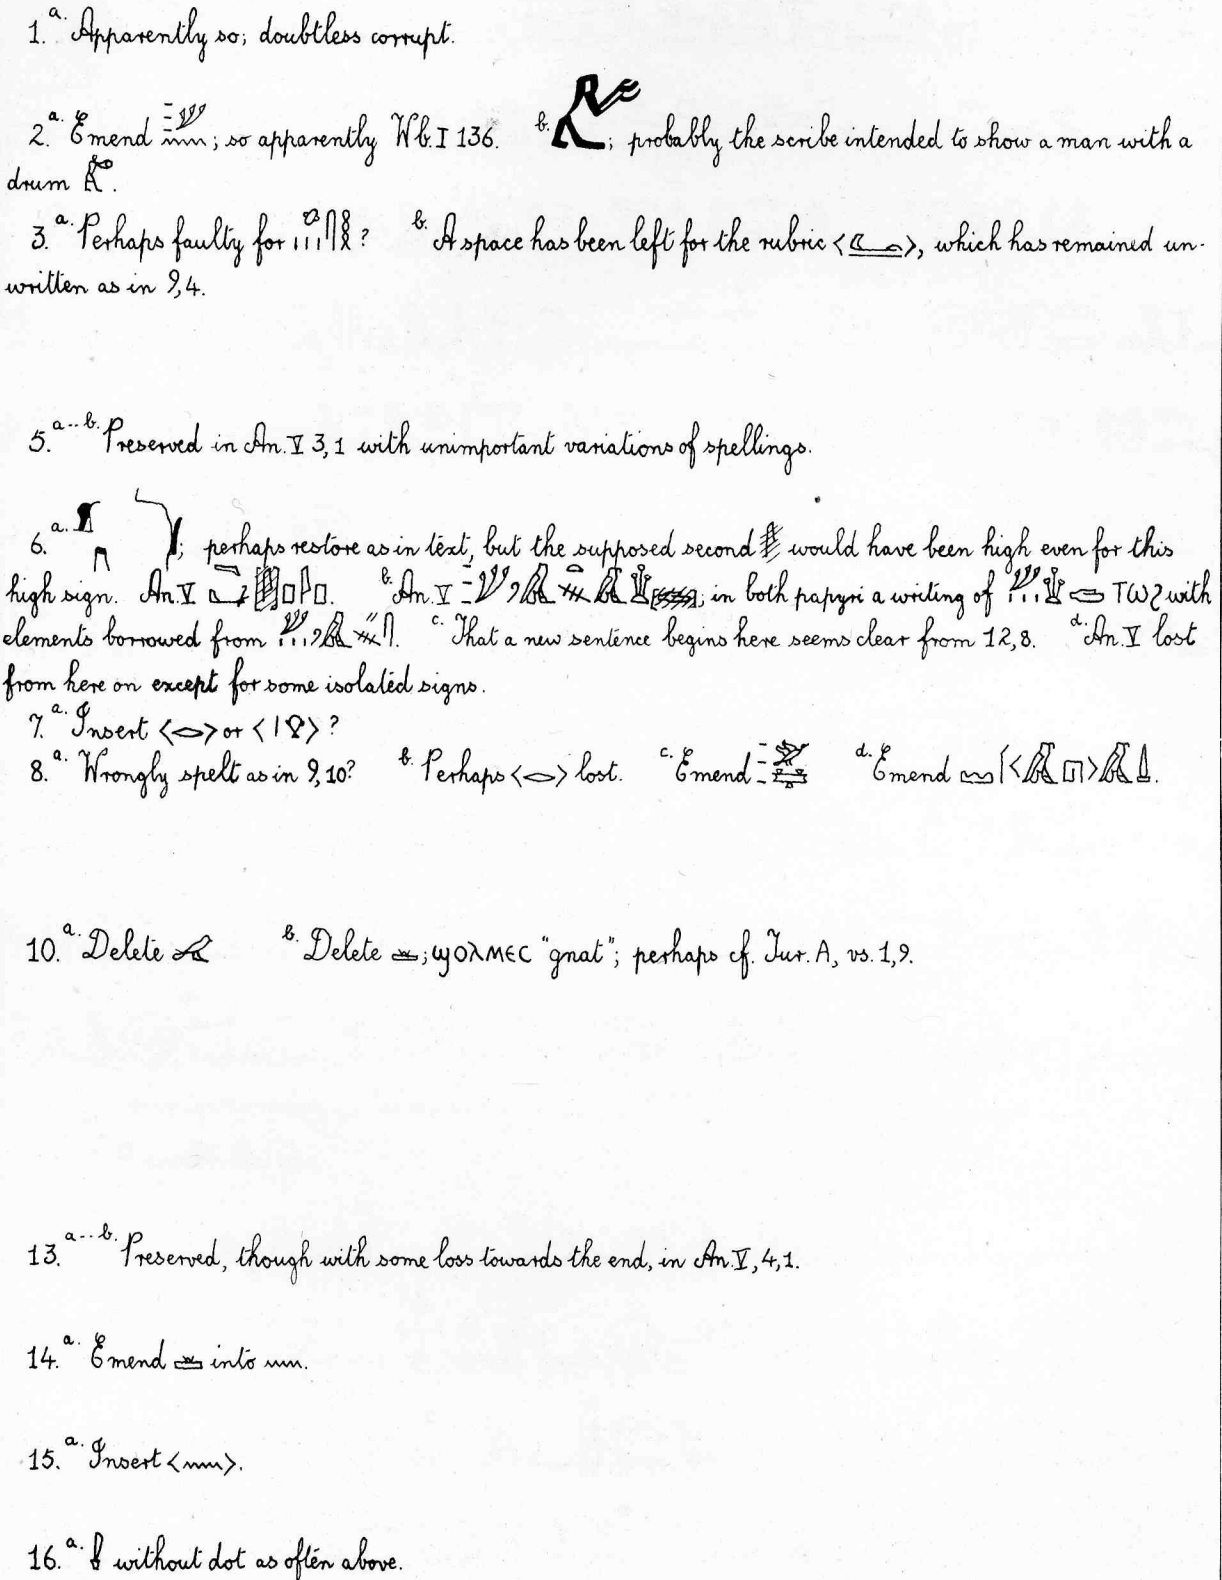 1.ᵃ· Apparently so; doubtless corrupt.
2.ᵃ· Emend ; so apparently Wb. I 136. ᵇ· ; probably the scribe intended to show a man with a
drum .
3.ᵃ· Perhaps faulty for ? ᵇ· A space has been left for the rubric < >, which has remained un-
written as in 9,4.
5.ᵃ··ᵇ· Preserved in An. V 3,1 with unimportant variations of spellings.
6.ᵃ· ; perhaps restore as in text, but the supposed second would have been high even for this
high sign. An. V . ᵇ· An. V ; in both papyri a writing of ⲧⲱϩ with
elements borrowed from . ᶜ· That a new sentence begins here seems clear from 12,8. ᵈ· An. V lost
from here on except for some isolated signs.
7.ᵃ· Insert <𓂋> or <𓏤𓁷> ?
8.ᵃ· Wrongly spelt as in 9,10? ᵇ· Perhaps <𓂋> lost. ᶜ· Emend ᵈ· Emend .
10.ᵃ· Delete ᵇ· Delete ; ϣⲟⲗⲙⲉⲥ "gnat"; perhaps cf. Tur. A, vs. 1,9.
13.ᵃ··ᵇ· Preserved, though with some loss towards the end, in An. V, 4,1.
14.ᵃ· Emend 𓏠 into 𓈖.
15.ᵃ· Insert <𓈖>.
16.ᵃ· without dot as often above.